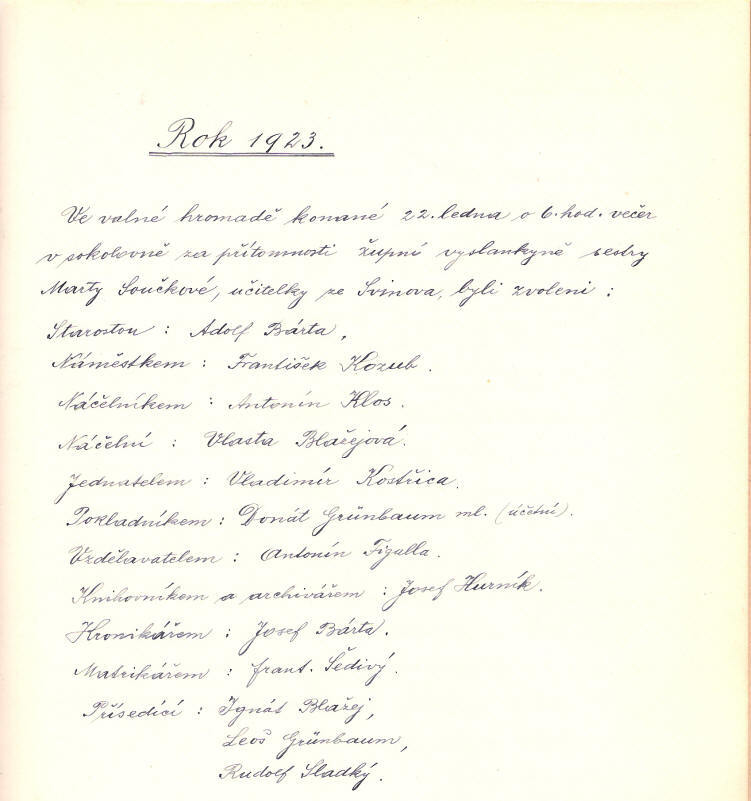 Rok 1923.
Ve valné hromadě konané 22. ledna o 6. hod. večer
v sokolovně za přítomnosti župní vyslankyně sestry
Marty Součkové, učitelky ze Svinova, byli zvoleni :
Starostou : Adolf Bárta,
Náměstkem : František Kozub.
Náčelníkem : Antonín Klos.
Náčelní : Vlasta Blažejová.
Jednatelem : Vladimír Kostřica.
Pokladníkem : Donát Grünbaum ml. (účetní).
Vzdělavatelem : Antonín Figalla.
Knihovníkem a archivářem : Josef Hurník.
Kronikářem : Josef Bárta.
Matrikářem : Frant. Šedivý.
Přísedící : Ignát Blažej,
Leoš Grünbaum,
Rudolf Sladký.